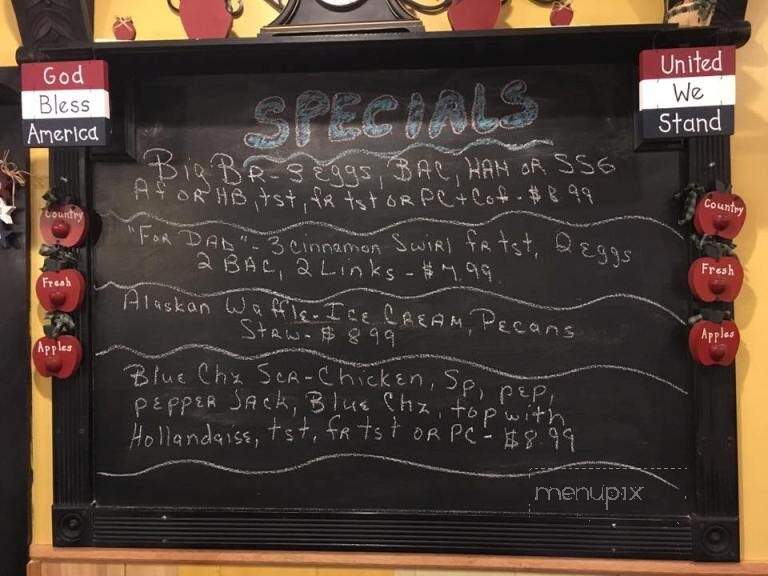 God
Bless
America
United
We
Stand
SPECIALS
Big BR - 3 Eggs, BAC, HAM OR SSG
AF OR HB, tst, fr tst OR PC + Cof - $8.99
"FOR DAD" - 3 Cinnamon Swirl fr tst, 2 Eggs
2 BAC, 2 Links - $7.99
Alaskan Waffle - ICE CREAM, Pecans
Straw - $8.99
Blue Chz Scr - Chicken, Sp, pep,
pepper Jack, Blue Chz, top with
Hollandaise, tst, fr tst OR PC - $8.99
Country
Fresh
Apples
Country
Fresh
Apples
menupix